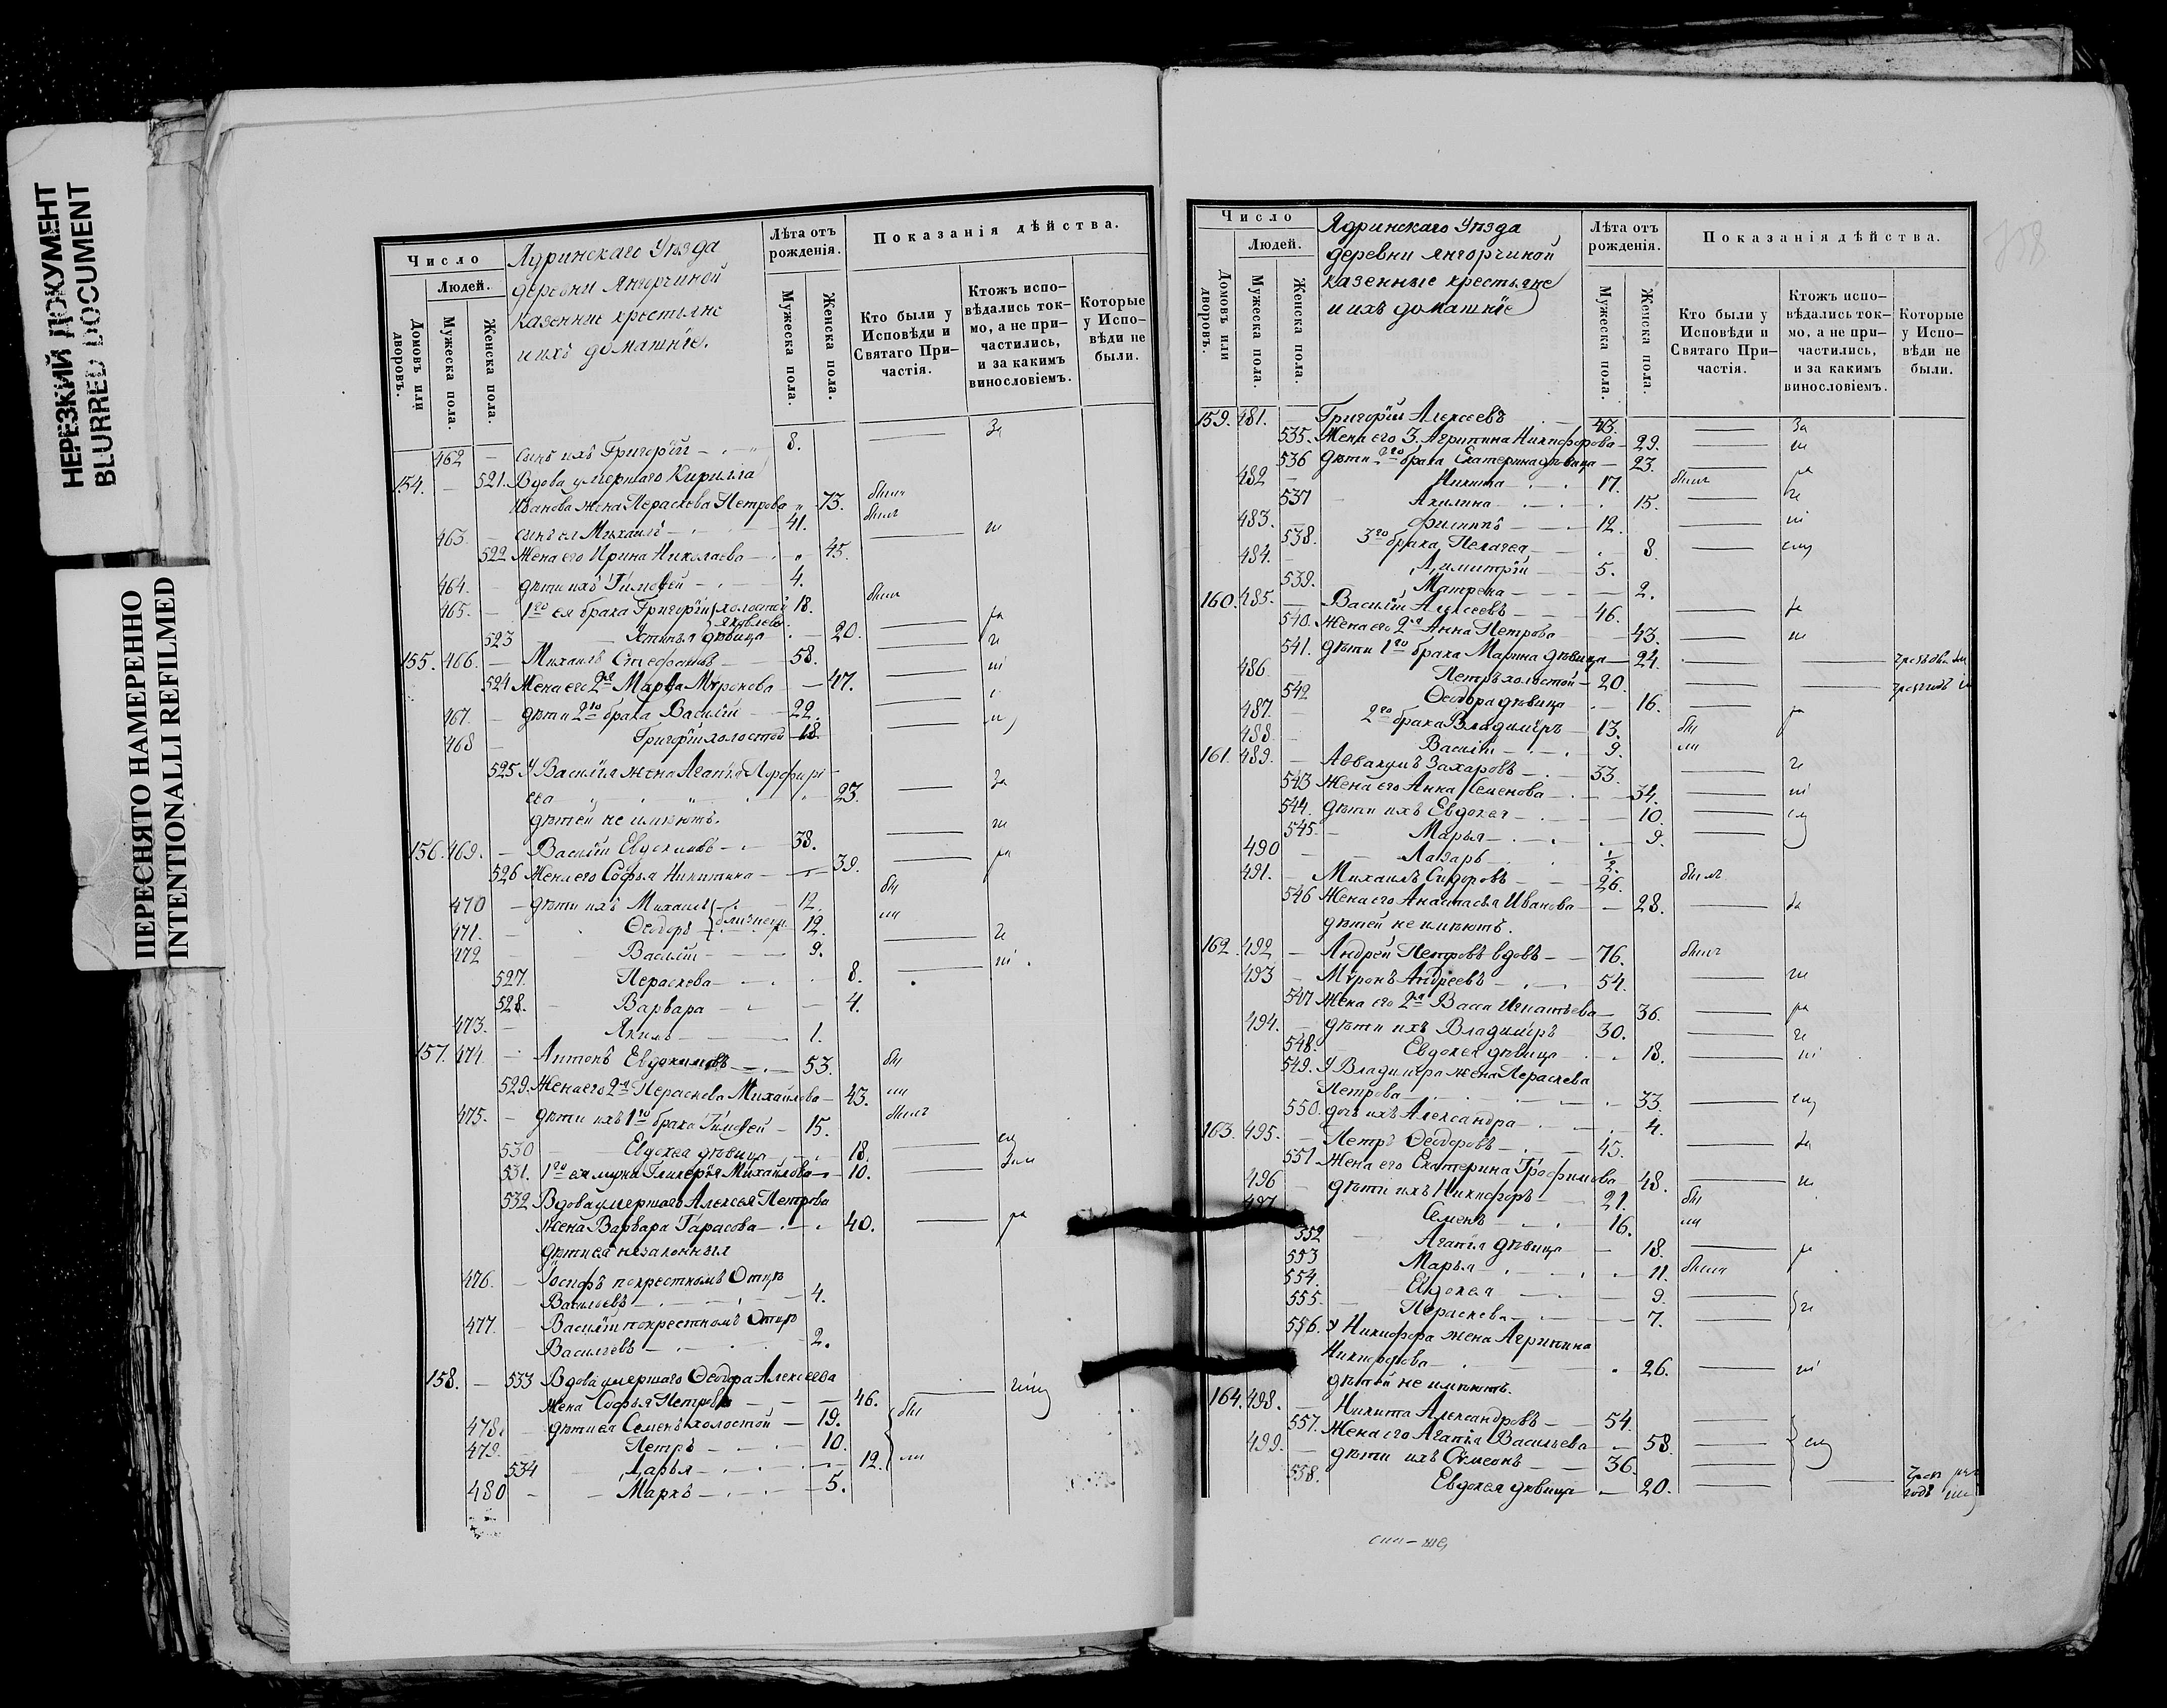 НЕРЕЗКИЙ ДОКУМЕНТ
BLURRED DOCUMENT
ПЕРЕСНЯТО НАМЕРЕННО
INTENTIONALLI REFILMED
Число
Людей.
Домовъ или дворовъ.
Мужеска пола.
Женска пола.
Ядринскаго Уѣзда
деревни Янгорчиной
казенные крестьяне
и ихъ домашніе.
Лѣта отъ рожденія.
Мужеска пола.
Женска пола.
Показанія дѣйства.
Кто были у Исповѣди и Святаго При-частія.
Ктожъ испо-вѣдались ток-мо, а не при-частились, и за какимъ винословіемъ.
Которые у Испо-вѣди не были.
462 — сынъ ихъ Григорій — 8. — За
154. — 521. Вдова умершаго Кирилла
Иванова жена Параскева Петрова „ 73. была
463. — сынъ ея Михаилъ — 41. былъ
522 Жена его Ирина Николаева — 45. —
464. — дѣти ихъ Тимоѳей — 4.
465. — 1го ея брака Григорій холостой 18. былъ
Яковлевъ
523 Устинья дѣвица — 20. —
155. 466. — Михаилъ Стефановъ — 58. —
524 Жена его 2я Марѳа Мѵронова — 47. —
467. — дѣти 2го брака Василій — 22. —
468 — Григорій холостой — 18. —
525 У Василія жена Агапія Порфирі-
ева — 23. — За
дѣтей не имѣютъ.
156. 469. — Василій Евдокимовъ — 38. —
526 Жена его Софья Никитина — 39. —
470 — дѣти ихъ Михаилъ близнецы 12.
471. — Ѳеодоръ — 12.
472 — Василій — 9. —
527. Параскева — 8. —
528. Варвара — 4.
473. — Якимъ — 1.
157. 474 — Антонъ Евдокимовъ — 53.
529. Жена его 2я Параскева Михайлова — 43.
475. — дѣти ихъ 1го брака Тимоѳей — 15. былъ
530 — Евдокея дѣвица — 18. —
531. 1го ея мужа Гликерія Михайлова — 10. —
532 Вдова умершаго Алексея Петрова
жена Варвара Тарасова — 40. —
дѣти ея незаконныя
476. — Іосифъ по крестномъ Отцѣ
Васильевъ — 4.
477. — Василій по крестномъ Отцѣ
Васильевъ — 2.
158. — 533 Вдова умершаго Ѳеодора Алексеева
жена Софья Петрова — 46. —
478. — дѣти ея Семенъ холостой — 19.
479. — Петръ — 10.
534 Дарья — 12.
480 — Маркъ — 5.
Число
Людей.
Домовъ или дворовъ.
Мужеска пола.
Женска пола.
Ядринскаго Уѣзда
деревни Янгорчиной
казенные крестьяне
и ихъ домашніе
Лѣта отъ рожденія.
Мужеска пола.
Женска пола.
Показанія дѣйства.
Кто были у Исповѣди и Святаго При-частія.
Ктожъ испо-вѣдались ток-мо, а не при-частились, и за какимъ винословіемъ.
Которые у Испо-вѣди не были.
159. 481. — Григорій Алексеевъ — 43. — За
535. Жена его 3. Агрипина Никифорова — 29. —
536 дѣти 2го брака Екатерина дѣвица — 23. —
482 — Никита — 17. былъ
537 — Акилина — 15. —
483. — Филиппъ — 12. —
538. 3го брака Пелагея — 8. —
484. — Димитрій — 5.
539. Матрена — 2.
160. 485. — Василій Алексеевъ — 46. —
540. Жена его 2я Анна Петрова — 43. —
541. дѣти 1го брака Марина дѣвица — 24. —
486 — Петръ холостой — 20. —
542 Ѳеодора дѣвица — 16. —
487. — 2го брака Владиміръ — 13.
488 — Василій — 9.
161. 489. — Аввакумъ Захаровъ — 33. —
543 Жена его Анна Семенова — 34. —
544. дѣти ихъ Евдокея — 10. —
545. — Марья — 9. —
490 — Лазарь — ½.
491. — Михаилъ Сидоровъ — 26. былъ
546 Жена его Анастасья Иванова — 28. — За
дѣтей не имѣютъ.
162. 492. — Андрей Петровъ вдовъ — 76. былъ
493 — Мѵронъ Андреевъ — 54. —
547 Жена его 2я Васса Игнатьева — 36. —
494. — дѣти ихъ Владиміръ 30. —
548. Евдокея дѣвица — 18. —
549. У Владиміра жена Параскева
Петрова — 33. —
550. дочь ихъ Александра — 4.
163. 495. — Петръ Ѳеодоровъ — 45. — За
551 Жена его Екатерина Трофимова 48. —
496 — дѣти ихъ Никифоръ — 21.
497 Семенъ — 16.
552 — Агапія дѣвица — 18. —
553 Марья — 11. была
554. Евдокея — 9. —
555. — Параскева — 7. —
556. У Никифора жена Агрипина
Никифорова — 26. —
дѣтей не имѣютъ.
164. 498. — Никита Александровъ — 54. —
557. Жена его Агапія Васильева — 58. —
499. — дѣти ихъ Сѵмеонъ — 36. —
558. Евдокея дѣвица — 20. —